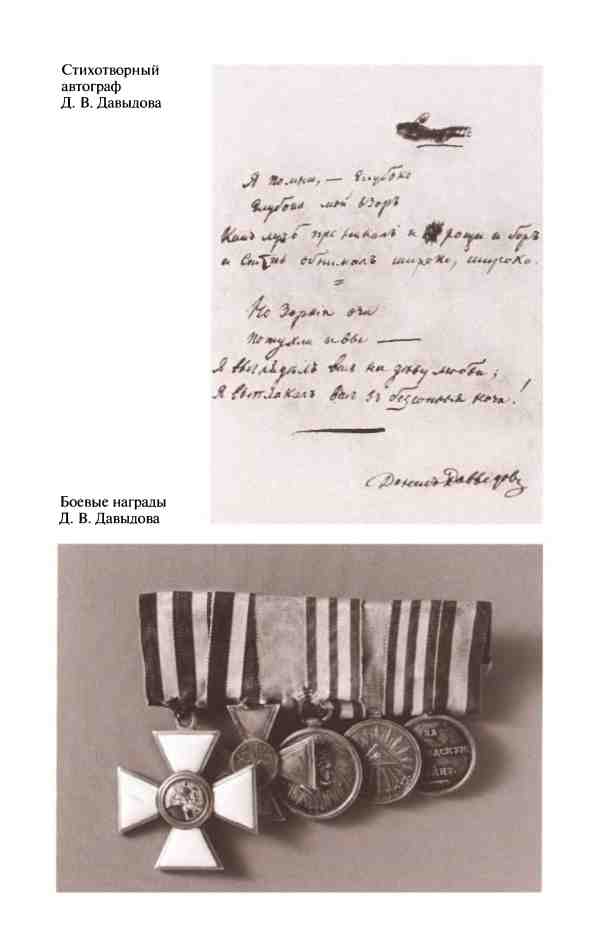 Стихотворный
автограф
Д. В. Давыдова
Я помню, — Глубоко
Глубоко мой взоръ
Какъ лучь проникалъ и рощи и боръ
и степь обнималъ широко, широко.
=
Но Зоркiя очи
Потухли и вы —
Я выглядѣлъ васъ на дѣву любви;
Я выплакалъ васъ въ безсонныя ночи!
Денисъ Давыдовъ
Боевые награды
Д. В. Давыдова
ЗА